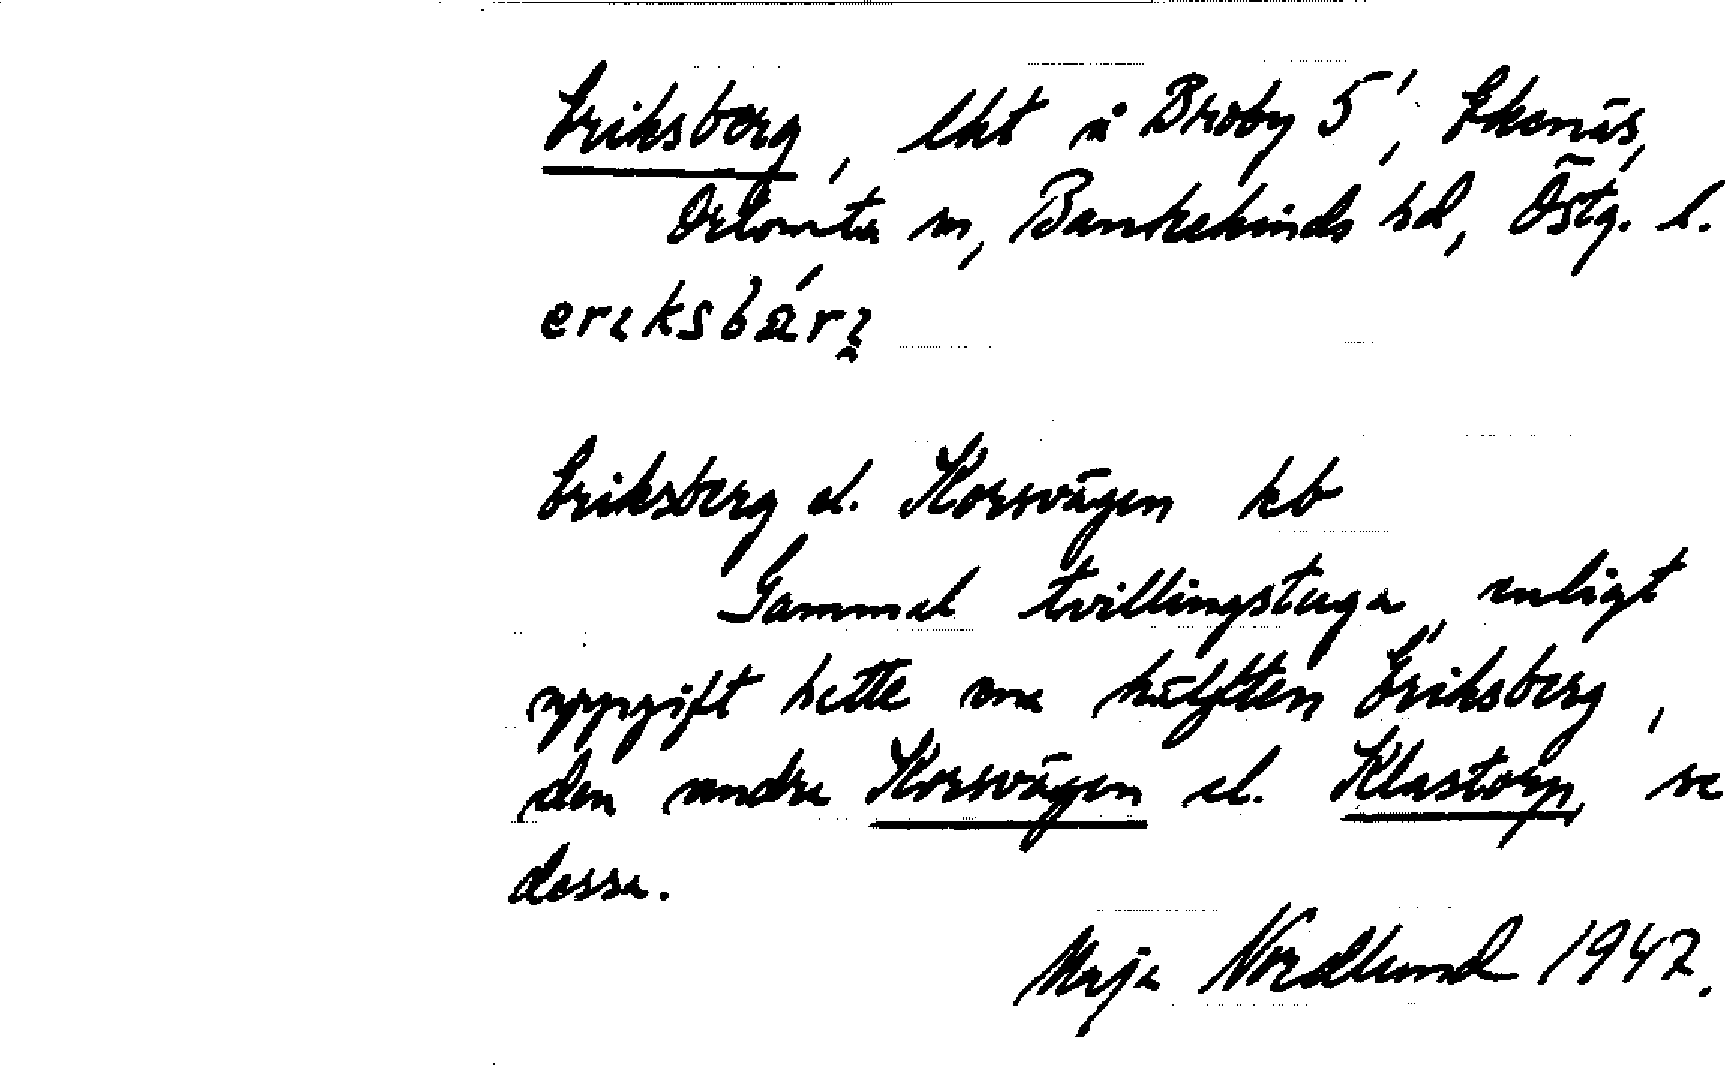 Eriksberg, lht å Broby 5', Ekenäs,
Örtomta sn, Bankekinds hd, Östg. l.
Eriksberg el. Korsvägen kb
Gammal tvillingstuga, enligt
uppgift hette ena hälften Eriksberg,
den andra Korsvägen el. Klastorp, se
dessa.
Maja Nordlund 1947.